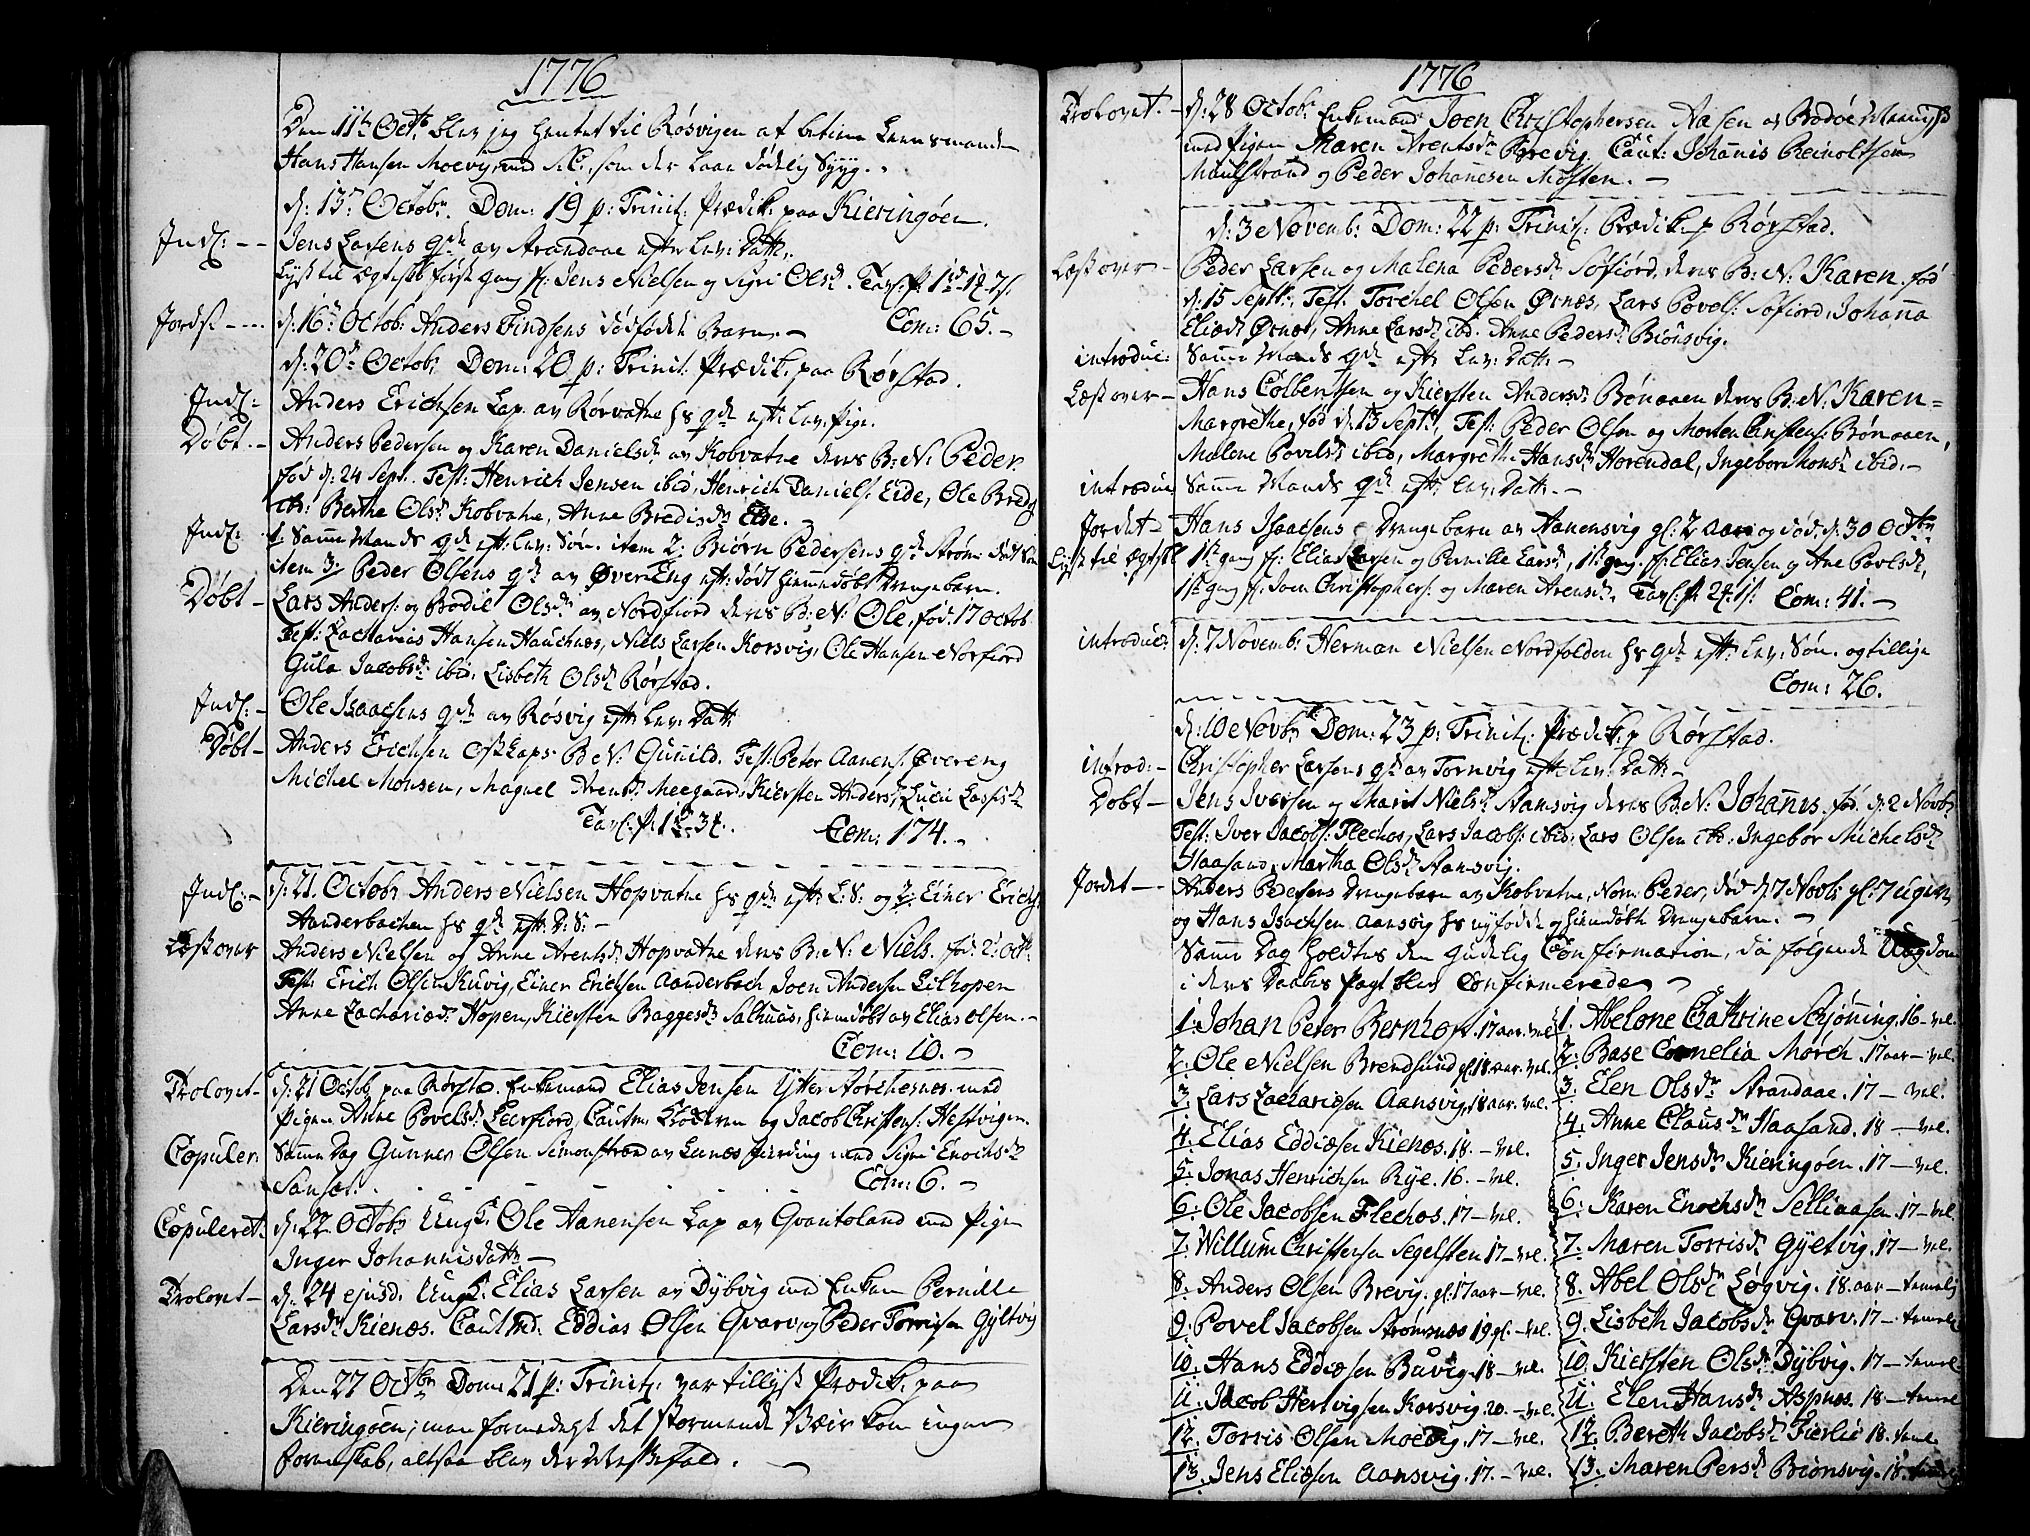 1776
Den 11te Octb. blev jeg hentet til Røsvigen at betiene Leensmanden
Hans Hansen Moevig, som der laae dødelig Syyg.
d: 13de Octobr. Dom: 19 p: Trinit: Prædik: paa Kieringøen.
Indl: -- Jens Larsens qde av Strandaae eftr Lev: Datt.
Lyst til Ægteskb første gang for Jens Nielsen og Sigri Olsdr. Tavl. p.
Jordf --- d: 16de Octob: Anders Findsens dødfødde Barn. - Com: 65. -
d: 20de Octobr Dom: 20 p: Trinit: Prædik: paa Rørstad.
Indl: Anders Erichsen Lap. av Rørvatne hs qde eftr Lev: Pige.
Døbt. - Anders Pedersen og Karen Danielsdr av Kobvatne deres B: N: Peder
fød d: 24 Sept. Test: Henrich Jensen ibid, Henrich Daniels: Eide, Ole Breds
ibd: Berthe Olsdr Kobvatne, Anne Bredisdr Eide.
Indl: 1. Samme Mands qde eft: Lev: Søn. item 2: Biørn Pedersens qde Strøm
item 3: Peder Olsens qde av Øvereng eft: dødt hiemedøbt Drengebarn.
Døbt - Lars Anders: og Bodil Olsdr av Nordfiord deres B: N: Ole, fød. 17 Octob.
Test: Zacharias Hansen Hauchnæs, Niels Larsen Korsvig, Ole Hansen Norfiord
Gula Jacobsdr ibid: Lisbeth Olsdr Rørstad.
Indl: - Ole Isaacsens qde av Røsvig eftr Lev: Datt
Døbt - Anders Erichsen Lap: B N: Gunild. Test: Peter Aanens: Øvereng
Michel Monsen, Magnel Arensdr Meegaard, Kiersten Andersd,
Tavl: p: Com: 174. -
Indl: - d: 21 Octobr Anders Nielsen Hopvatne hs qde eftr L: S: og 2: Einer Erichs:
Aanderbachen hs qde eftr D: S: -
Læst over Anders Nielsen og Anne Arentsdr Hopvatne deres B: N: Niels. fød: 2: Oct:
Test: Erich Olsen Kuvig, Einer Erichsen Aanderbach, Joen Andersen Lilhopen
Anne Zachariæd: Hopen, Kiersten Baggesdr Salthuus, hiemdøbt av Elias Olsen. -
Com: 10. -
Trolovet - d: 21 Octob. paa Rørsta. Enkemand Elias Jensen Ytter Nørchenæs med
Pigen Anne Povelsdr Leerfiord, Cautm: og Jacob Christens: Hestvigen.
Copuler: Samme Dag Gunner Olsen Simonstrand av Leenæs fierding med Signe Enochsdr
Com: 6. -
Copuleret: d: 22 Octobr Ungk: Ole Aanensen Lap av Qvantoland med Pigen
Inger Johannisdattr -
Trolovet - d: 24 ejusd. Ungk: Elias Larsen av Dybvig med Enken Pernille
Larsdr Kienæs. Cautmd: Eddias Olsen Qvarv, og Peder Torrisen Gyltvig
Den 27 Octbr Dom: 21 p: Trinit: var tillyst Prædik: paa
Kieringøen; men formedelst det stormende Væir kom ingen
formskab, altsaa blev der Messefald. -
1776
Trolovet. - d: 28 Octobr Enkemand Joen Christophersen Aasen av Bodøe
med Pigen Maren Arentsdr Brevig. Caut: Johannis Reinoltsen
Maulstrand og Peder Johanesen Mosten. -
d: 3 Novemb: Dom: 22 p: Trinit: Prædik: p Rørstad.
Læst over - Peder Larsen og Malena Pedersdr Søfiord, deres B: N: Karen. fød
d: 15 Septbr, Test: Torchel Olsen Ørnæs, Lars Povels: Søfiord, Johanna
Eliædr Ørnæs, Anne Larsdr ibd: Anne Pedersdr Biønsvig.
introduc: Samme Mands qde eftr Lev: Datt. -
Læst over - Hans Colbentsen og Kiersten Andersdr Bønaaen deres B: N: Karen-
Margrethe, fød d: 13 Septbr, Test: Peder Olsen og Morten Christens: Bønaaen,
Malene Povelsdr ibid, Margreth Hansdr Horendal, Ingebor Monsdr ibid. -
introduc Samme Mands qde eftr Lev: Datt. -
Jordet - Hans Isaacsens Drengebarn av Aanensvig gl: 2 aar og død. d: 30 Octbr
Lyst til Ægtskb 1ste gang for Elias Larsen og Pernille Larsdr, 1ste gang for Elias Jensen og Ane Povelsdr,
1ste gang for Joen Christophers: og Maren Arensdr. Tavl: Com: 41. -
introduc: d: 7 Novemb: Herman Nielsen Nordfolden hs qde eftr Lev: Søn. og tillige
Com: 26.
d: 10 Novbr Dom: 23 p: Trinit: Prædik: p Rørstad.
introd: - Christopher Larsens qde av Tornvig eftr Lev: Datt -
Døbt - Jens Iversen og Marit Nielsdr Aansvig deres B: N: Johannis. fød. d: 2 Novbr
Test: Iver Jacobs: Flechos, Lars Jacobs: ibid: Lars Olsen ibd: Ingebor Michelsdr
Haasand, Martha Olsdr Aansvig.
Jordet - Anders Pedersens Drengebarn av Kobvatne, Nom: Peder, død d: 7 Novbr gl: 7 uger,
og Hans Isachsen Aansvig hs nyfødde og hiemdøbte Drengebarn. -
Samme Dag holdtes den Gudelig Confirmation, da følgende Ungdom
i deres Daabes Pagt blev Confirmerede -
1. Johan Peter Bernhoft. 17 aar. vel
2. Ole Nielsen Brendsund gl. 18. aar. vel.
3. Lars Zachariæsen Aansvig, 18 aar. vel.
4. Elias Eddiæsen Kienæs. 18. - vel.
5. Jonas Henrichsen Rye. 16. - vel.
6. Ole Jacobsen Flechos. 17 - vel.
7. Willum Christensen Segelsten 17 - vel.
8. Anders Olsen Brevig. gl. 17 aar - vel.
9. Povel Jacobsen Strømnæs 19 gl. - vel.
10. Hans Eddiæsen Buvig. 18 - vel.
11. Jacob Hertvigsen Korsvig. 20. - vel.
12. Torris Olsen Moevig. 17 - vel.
13. Jens Eliæsen Aansvig. 17. - vel.
1. Abelone Cathrine Schjønning. 16 - vel.
2. Base Cornelia Mørch. 17 aar - vel.
3. Elen Olsdr Strandaae. 17 - vel.
4. Anne Clausdr Haasand. 18 - vel.
5. Inger Jensdr Kieringøen. 17 - vel.
6. Karen Enochsdr Selliaasen. 17 - vel.
7. Maren Torrisdr Gyltvig. 17 - vel.
8. Abel Olsdr Løgvig. 18. aar - temelig
9. Lisbeth Jacobsdr Qvarv. 17 - temel
10. Kiersten Olsdr Dybvig. 17 - temel
11. Elen Hansdr Aspnæs. 18 - temel
12. Bereth Jacobsdr Fierlie 18. temel
13. Maren Persdr Biønsvig. 18. temel